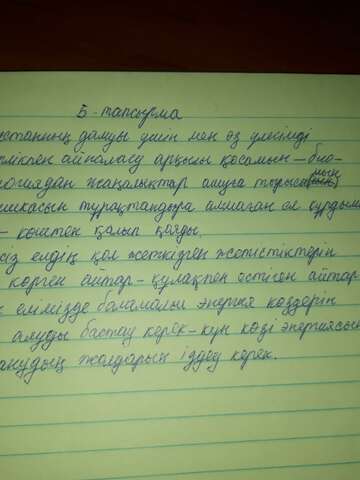 5 - тапсырма
станның дамуы үшін мен өз үлесімді
мікпен айналасу арқылы қосамын – био-
логиядан жаңалықтар ашуға тырысамын)
шкасын тұрақтандыра алмаған ел құрдым
– көштен қалып қояды.
сіз елдің қол жеткізген жетістіктерін
көрген айтар – құлақпен естіген айтар
елімізде баламалы энергия көздерін
алуды бастау керек – күн көзі энергиясын
анудың жолдарын іздеу керек.